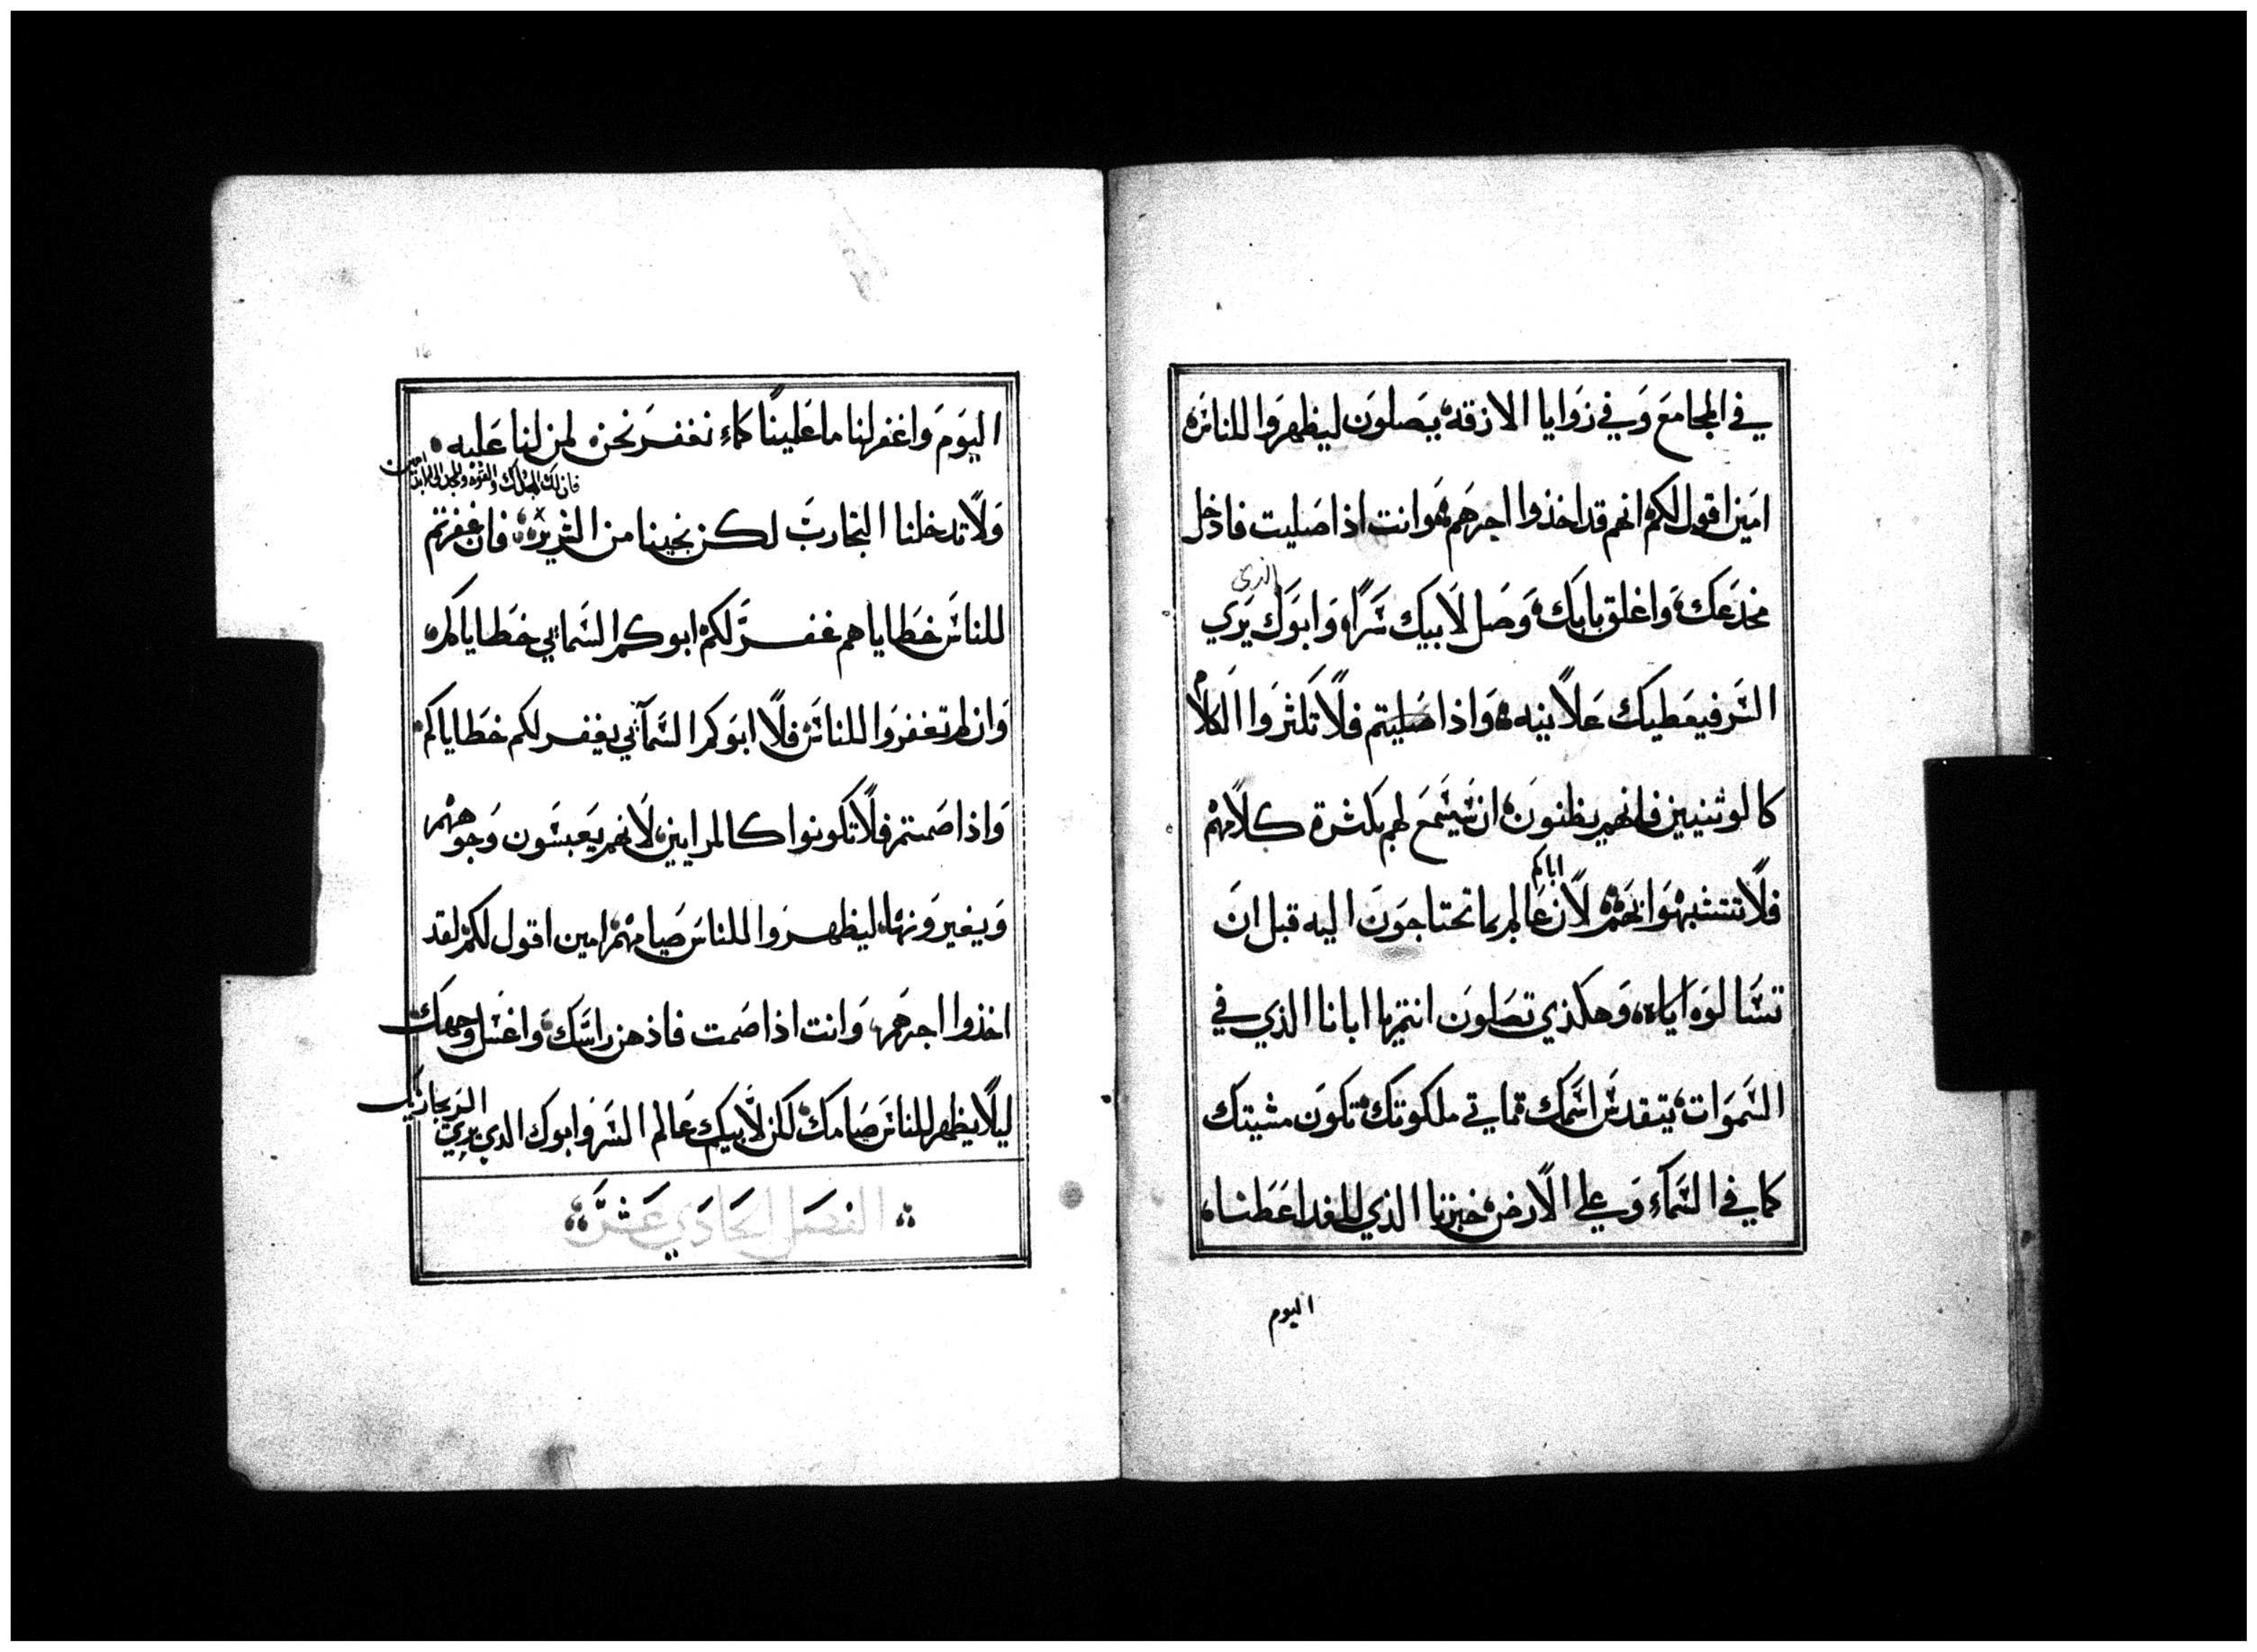 في المجامع وفي زوايا الازقه يصلون ليظهروا للناس
امين اقول لكم انهم قد اخذوا اجرهم وانت اذا صليت فادخل
مخدعك واغلق بابك وصل لابيك سرا وابوك يري
الذي
السر فيعطيك علانيه واذا صليتم فلا تكثروا الكلام
كالوثنيين فانهم يظنون ان سيسمع لهم بكثرة كلامهم
اباكم
فلا تتشبهوا بهم لان عالم بما تحتاجون اليه قبل ان
تسالوه اياه وهكذي تصلون انتم يا ابانا الذي في
السموات يتقدس اسمك تاتي ملكوتك تكون مشيتك
كما في السماء وعلي الارض خبزنا الذي للغد اعطنا
اليوم
١٤
اليوم واغفر لنا ما علينا كما نغفر نحن لمن لنا عليه
فان لك الملك والقوه والمجد الي الابد امين
ولا تدخلنا التجارب لكن نجينا من الشرير فان غفرتم
للناس خطاياهم غفر لكم ابوكم السمايي خطاياكم
وان لم تغفروا للناس فلا ابوكم السمآيي يغفر لكم خطاياكم
واذا صمتم فلا تكونوا كالمرايين لانهم يعبسون وجوههم
ويغيرونها ليظهروا للناس صيامهم امين اقول لكم لقد
اخذوا اجرهم وانت اذا صمت فاذهن راسك واغسل وجهك
ليلا يظهر للناس صيامك لكن لابيك عالم السر وابوك الدي يري السر يجازيك
الفصل الحادي عشر